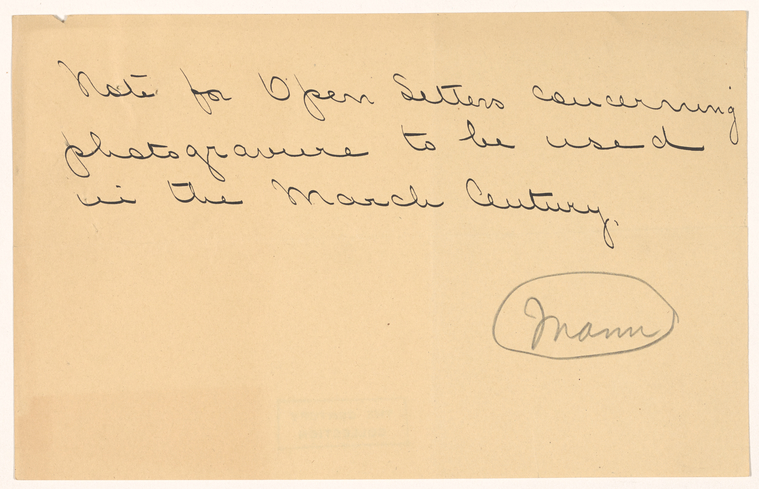 Note for Open Letters concerning
photogravure to be used
in the March Century.
Mann